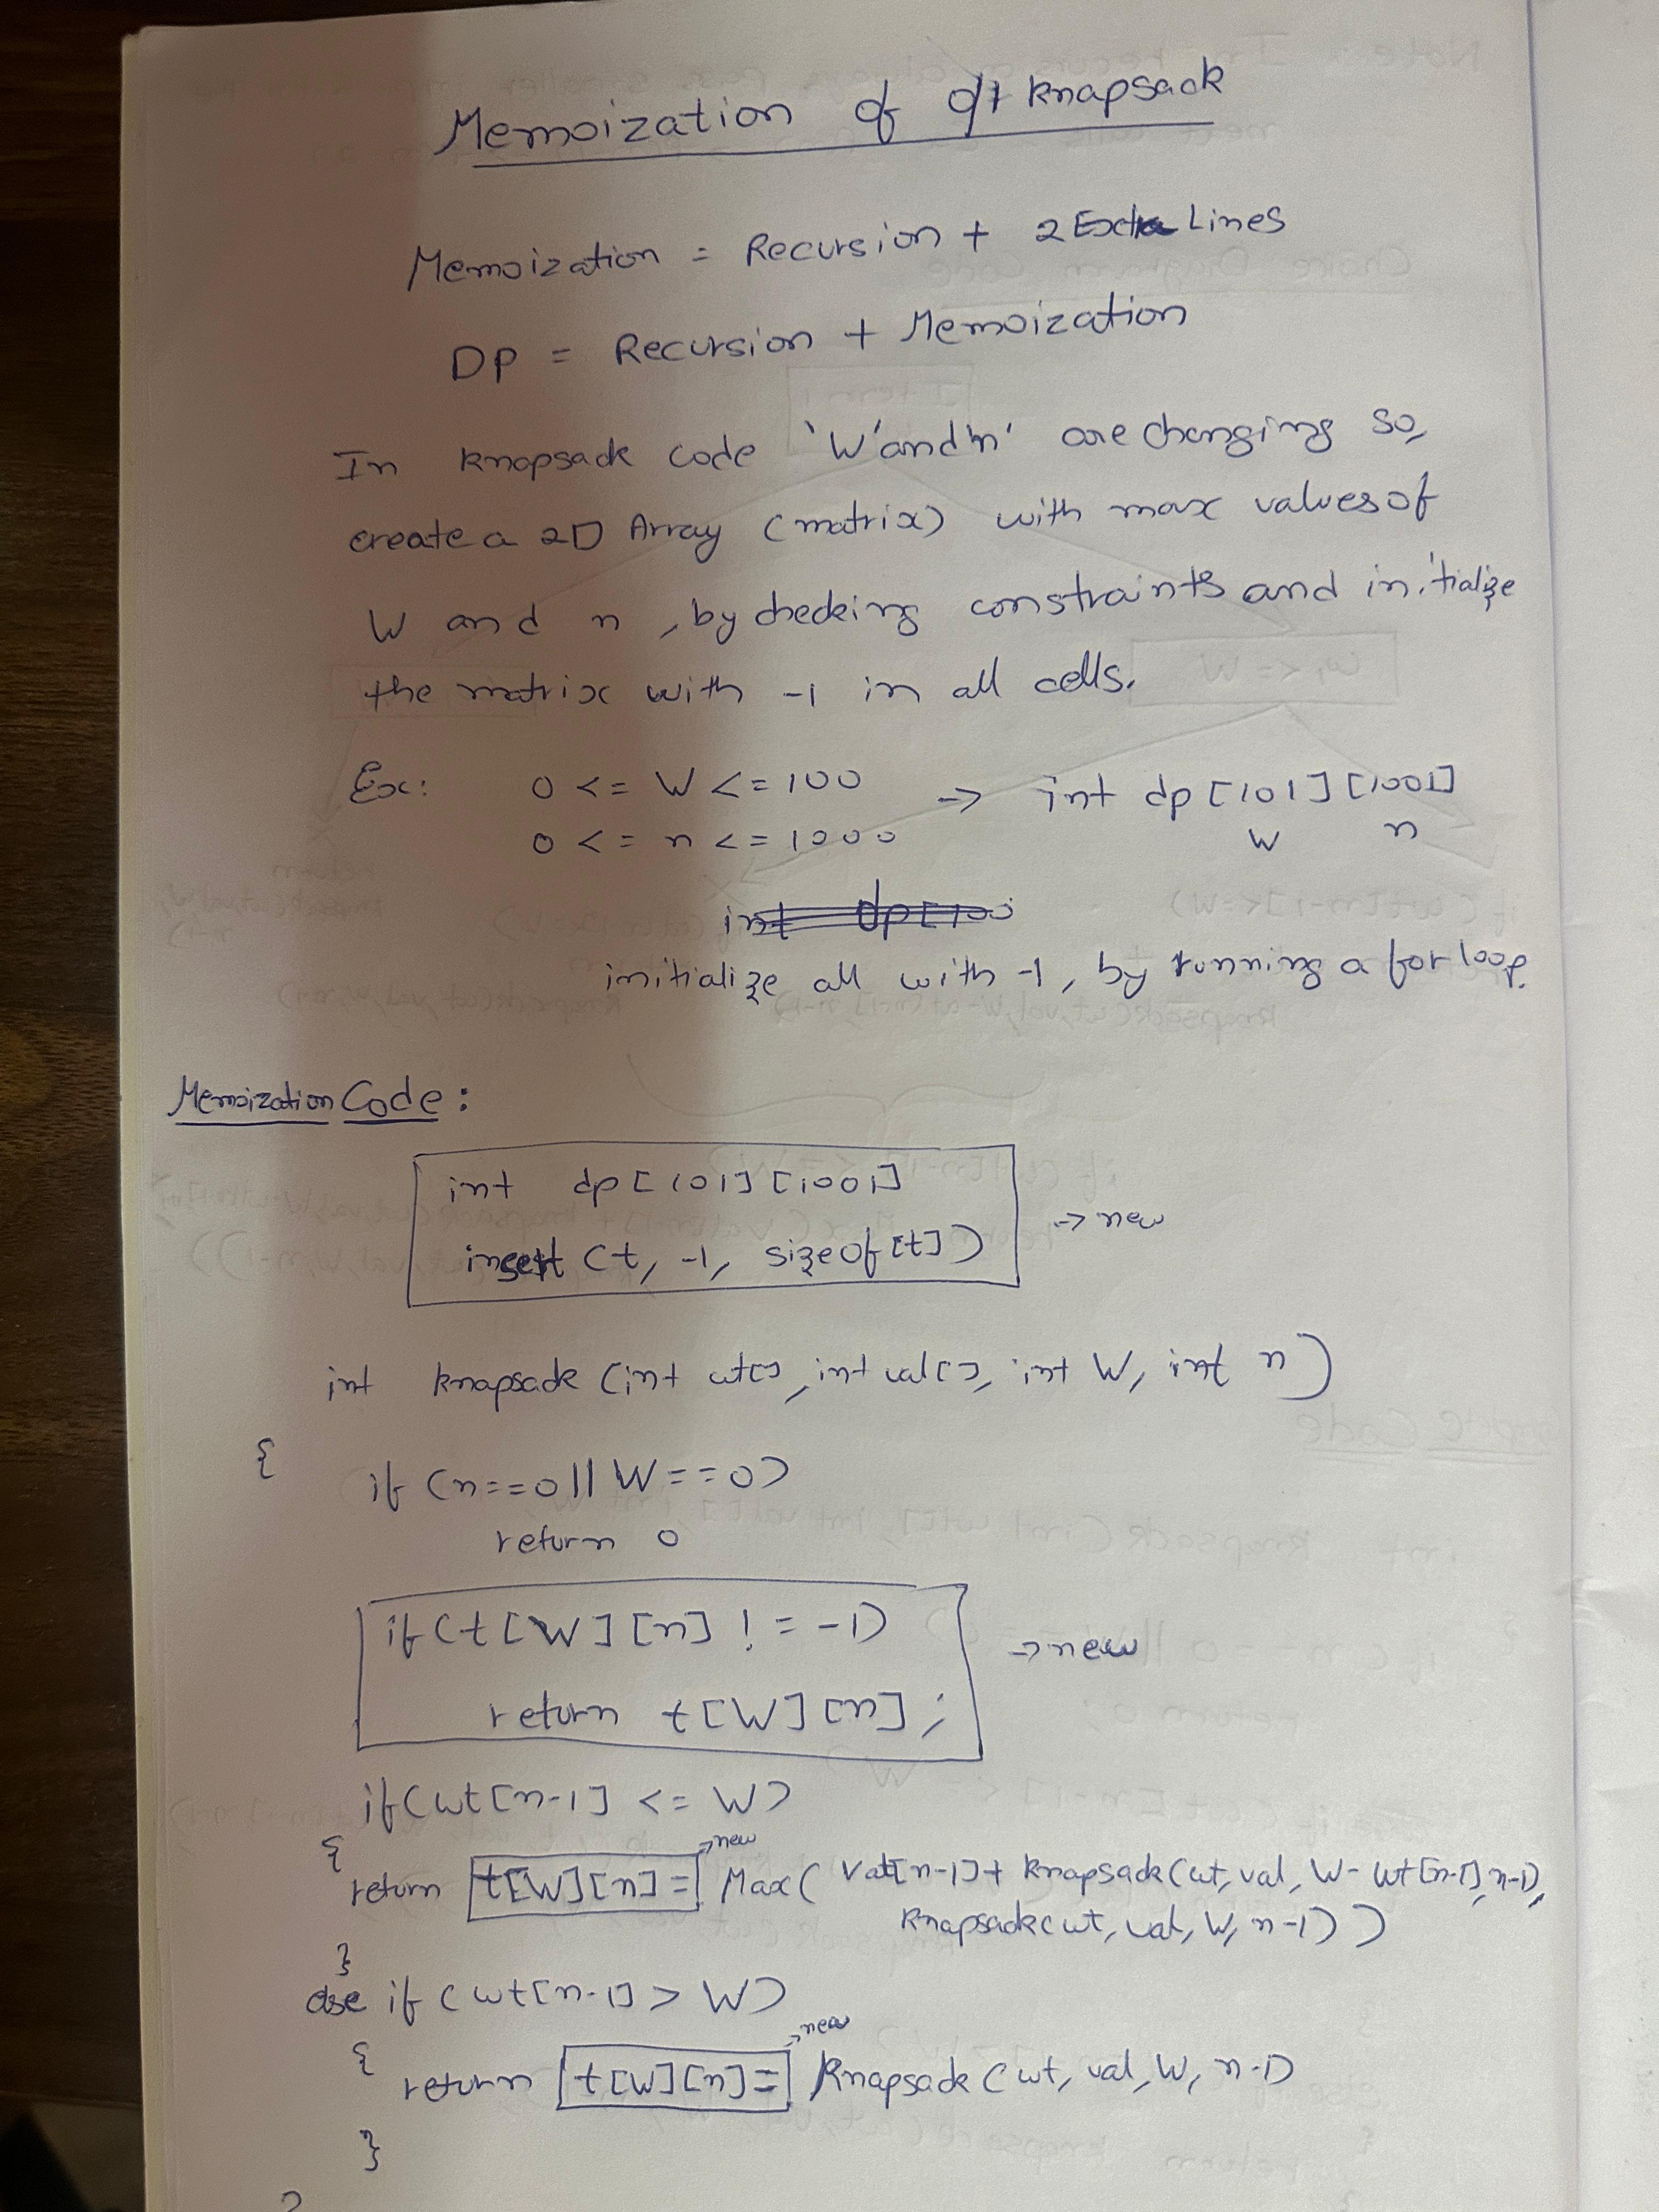 Memoization of 0/1 knapsack
Memoization = Recursion + 2 Extra Lines
DP = Recursion + Memoization
In knapsack code 'W' and 'n' are changing so,
create a 2D Array (matrix) with max values of
W and n, by checking constraints and initialize
the matrix with -1 in all cells.
Ex: 0 <= W <= 100 -> int dp[101][1001]
0 <= n <= 1000 W n
int dp[100
initialize all with -1, by running a for loop.
Memoization Code:
int dp[101][1001]
insert (t, -1, sizeof[t]) -> new
int knapsack (int wt[], int val[], int W, int n)
{
if (n==0 || W==0)
return 0
if(t[W][n] != -1)
-> new
return t[W][n];
if(wt[n-1] <= W)
{ -> new
return t[W][n] = Max( val[n-1] + knapsack(wt, val, W - wt[n-1], n-1),
knapsack(wt, val, W, n-1))
}
else if (wt[n-1] > W)
-> new
{ return t[W][n] = knapsack (wt, val, W, n-1)
}